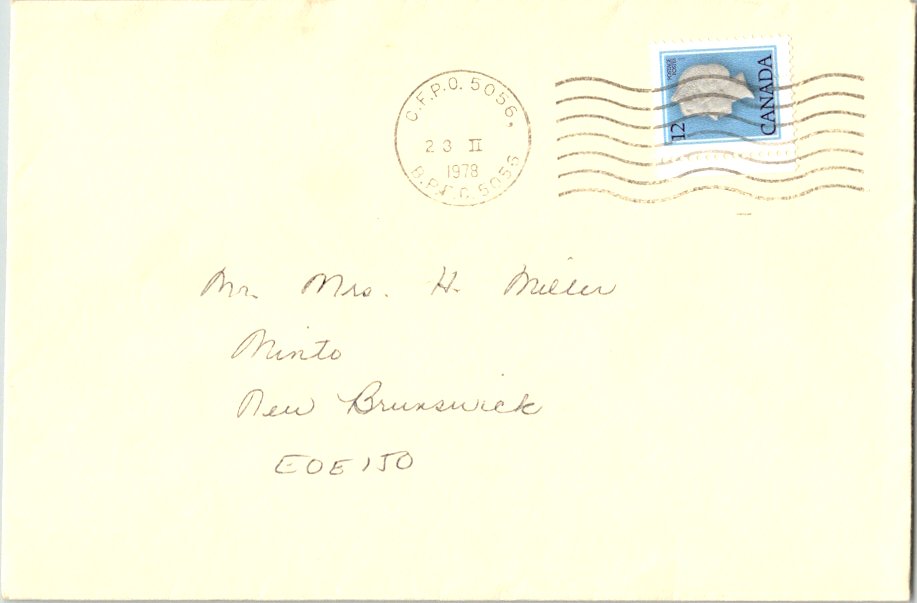 C.F.P.O. 5056,
23 II
1978
B.P.F.C. 5056
POSTAGE
POSTES
12
CANADA
Mr. Mrs. H. Miller
Minto
New Brunswick
E0E 1J0